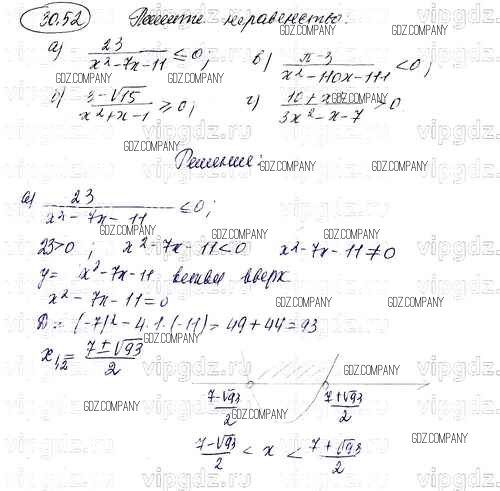 30.52 Решите неравенство:
а) 23 / (x² - 7x - 11) ≤ 0; в) (π - 3) / (x² - 110x - 111) < 0;
б) (3 - √15) / (x² + x - 1) ≥ 0; г) / (3x² - x - 7) > 0
Решение:
а) 23 / (x² - 7x - 11) ≤ 0;
23 > 0; x² - 7x - 11 < 0 x² - 7x - 11 ≠ 0
y = x² - 7x - 11 ветви вверх
x² - 7x - 11 = 0
D = (-7)² - 4·1·(-11) = 49 + 44 = 93
x₁,₂ = (7 ± √93) / 2
(7 - √93) / 2 (7 + √93) / 2
(7 - √93) / 2 < x < (7 + √93) / 2
GDZ.COMPANY
vipgdz.ru